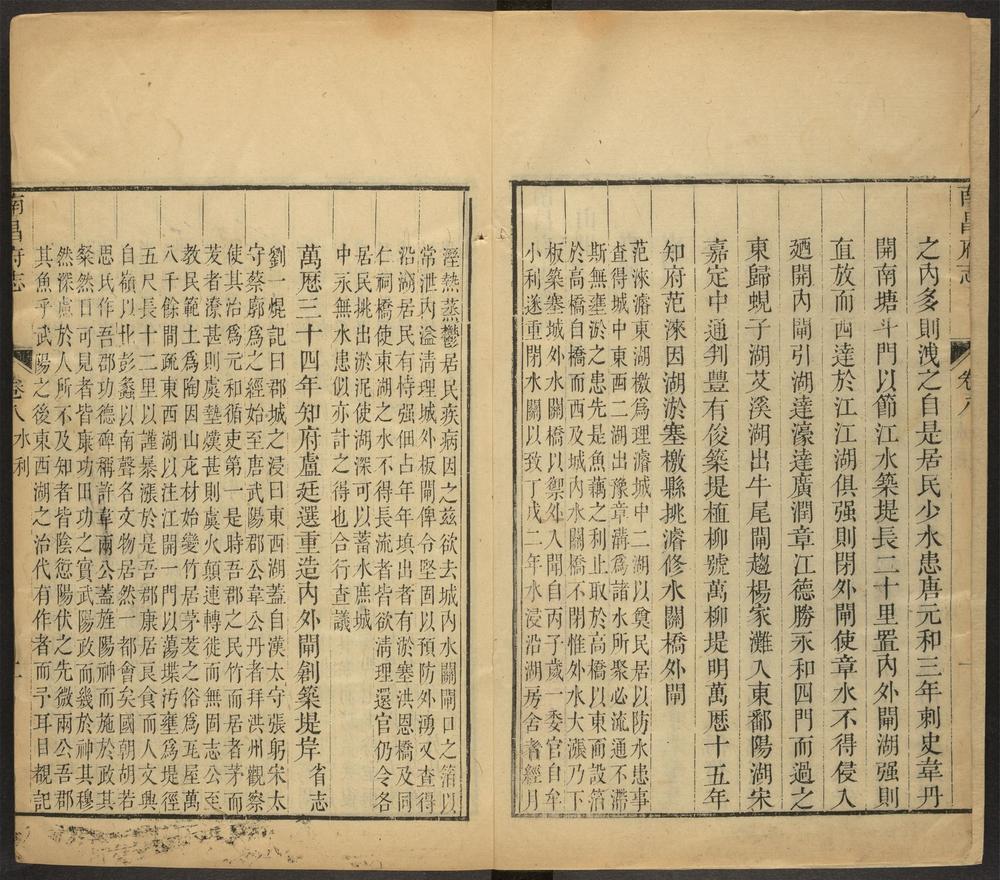 南昌府志
卷八
之內多則洩之自是居民少水患唐元和三年刺史韋丹
開南塘斗門以節江水築堤長二十里置內外閘湖强則
直放而西達於江江湖俱强則閉外閘使章水不得侵入
廼開內閘引湖達濠達廣潤章江德勝永和四門而過之
東歸蜆子湖艾溪湖出牛尾閘趨楊家灘入東鄱陽湖宋
嘉定中通判豐有俊築堤植柳號萬柳堤明萬曆十五年
知府范淶因湖淤塞檄縣挑濬修水關橋外閘
范淶濬東湖檄爲理濬城中二湖以奠民居以防水患事
查得城中東西二湖出豫章溝爲諸水所聚必流通不滯
斯無壅淤之患先是魚藕之利止取於高橋以東而設箔
於高橋自橋而西及城內水關橋不閉惟外水大漲乃下
板築塞外城水關橋以禦外入聞自丙子歲一委官自牟
小利遂重閉水關以致丁戊二年水浸沿湖房舍者經月
溼熱蒸鬱居民疾病因之茲欲去城內水關閘口之箔以
常泄內溢淸理城外板閘俾令堅固以預防外湧又查得
沿湖居民有恃强佃占年年塡出者有淤塞洪恩橋及同
仁祠橋使東湖之水不得長流者皆欲淸理還官仍令各
居民挑出淤泥使湖深可以蓄水庶城
中永無水患似亦計之得也合行查議
萬曆三十四年知府盧廷選重造內外閘創築堤岸 省志
劉一焜記曰郡城之浸曰東西湖蓋自漢太守張躬宋太
守蔡廓爲之經始至唐武陽郡公韋公丹者拜洪州觀察
使其治爲元和循吏第一是時吾郡之民竹而居者茅而
茇者潦甚則虞墊熯甚則虞火顛連轉徙而無固志公至
教民範土爲陶因山庀材始變竹居茅茇之俗爲瓦屋萬
八千餘間疏東西湖以注江開一門以蕩堞汚壅爲堤徑
五尺長十二里以謹暴漲於是吾郡康居艮食而人文與
自嶺以北彭蠡以南聲名文物居然一都會矣國朝胡若
思氏作吾郡功德碑稱許韋兩公蓋旌陽神而施於政其
粲然曰可見者皆康功田功之實武陽政而幾於神其穆
然深慮於人所不及知者皆陰愆陽伏之先微兩公吾郡
其魚乎武陽之後東西湖之治代有作者而予耳目覩記
南昌府志
卷八 水利